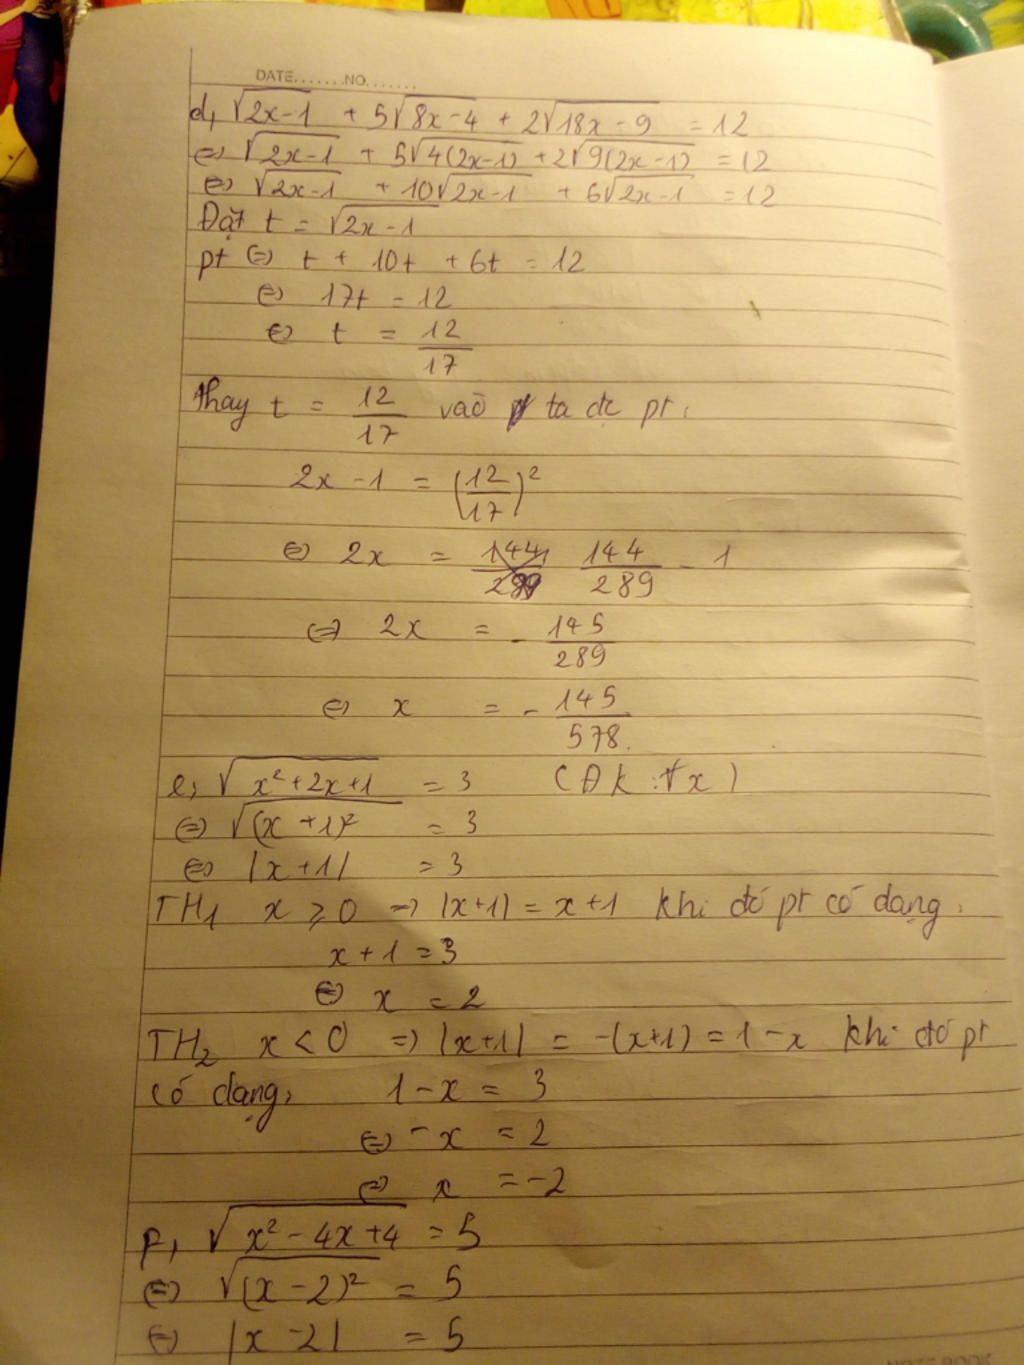 DATE.......NO.......
d, √(2x-1) + 5√(8x-4) + 2√(18x-9) = 12
⇔ √(2x-1) + 5√(4(2x-1)) + 2√(9(2x-1)) = 12
⇔ √(2x-1) + 10√(2x-1) + 6√(2x-1) = 12
Đặt t = √(2x-1)
pt ⇔ t + 10t + 6t = 12
⇔ 17t = 12
⇔ t = 12/17
Thay t = 12/17 vào ta đc pt:
2x - 1 = (12/17)²
⇔ 2x = 144/289 - 1
⇔ 2x = - 145/289
⇔ x = - 145/578.
e, √(x²+2x+1) = 3 (ĐK: ∀x)
⇔ √((x+1)²) = 3
⇔ |x+1| = 3
TH1 x ⩾ 0 => |x+1| = x+1 khi đó pt có dạng:
x + 1 = 3
⇔ x = 2
TH2 x < 0 => |x+1| = -(x+1) = 1-x khi đó pt
có dạng: 1-x = 3
⇔ -x = 2
⇔ x = -2
f, √(x²-4x+4) = 5
⇔ √((x-2)²) = 5
⇔ |x-2| = 5
NOTE BOOK